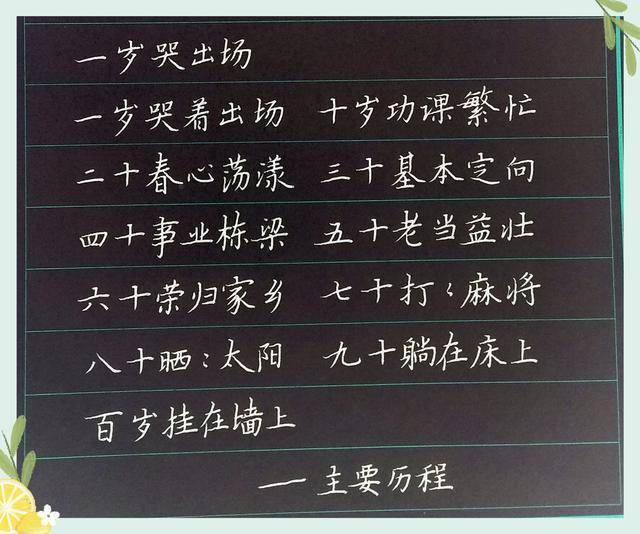 一岁哭出场
一岁哭着出场 十岁功课繁忙
二十春心荡漾 三十基本定向
四十事业栋梁 五十老当益壮
六十荣归家乡 七十打々麻将
八十晒:太阳 九十躺在床上
百岁挂在墙上
——主要历程